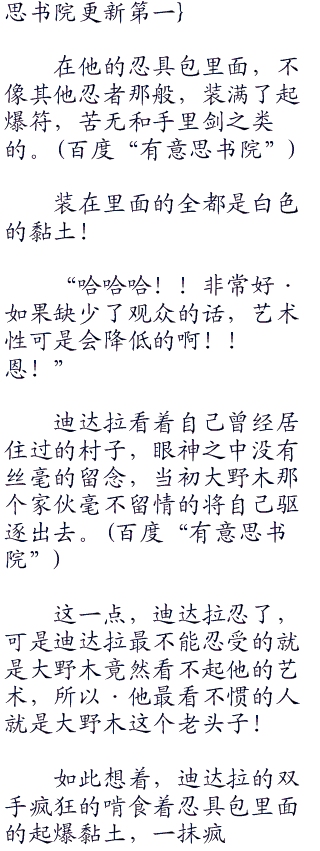 思书院更新第一}
在他的忍具包里面，不
像其他忍者那般，装满了起
爆符，苦无和手里剑之类
的。(百度“有意思书院”)
装在里面的全都是白色
的黏土！
“哈哈哈！！非常好·
如果缺少了观众的话，艺术
性可是会降低的啊！！
恩！”
迪达拉看着自己曾经居
住过的村子，眼神之中没有
丝毫的留念，当初大野木那
个家伙毫不留情的将自己驱
逐出去。(百度“有意思书
院”)
这一点，迪达拉忍了，
可是迪达拉最不能忍受的就
是大野木竟然看不起他的艺
术，所以·他最看不惯的人
就是大野木这个老头子！
如此想着，迪达拉的双
手疯狂的啃食着忍具包里面
的起爆黏土，一抹疯